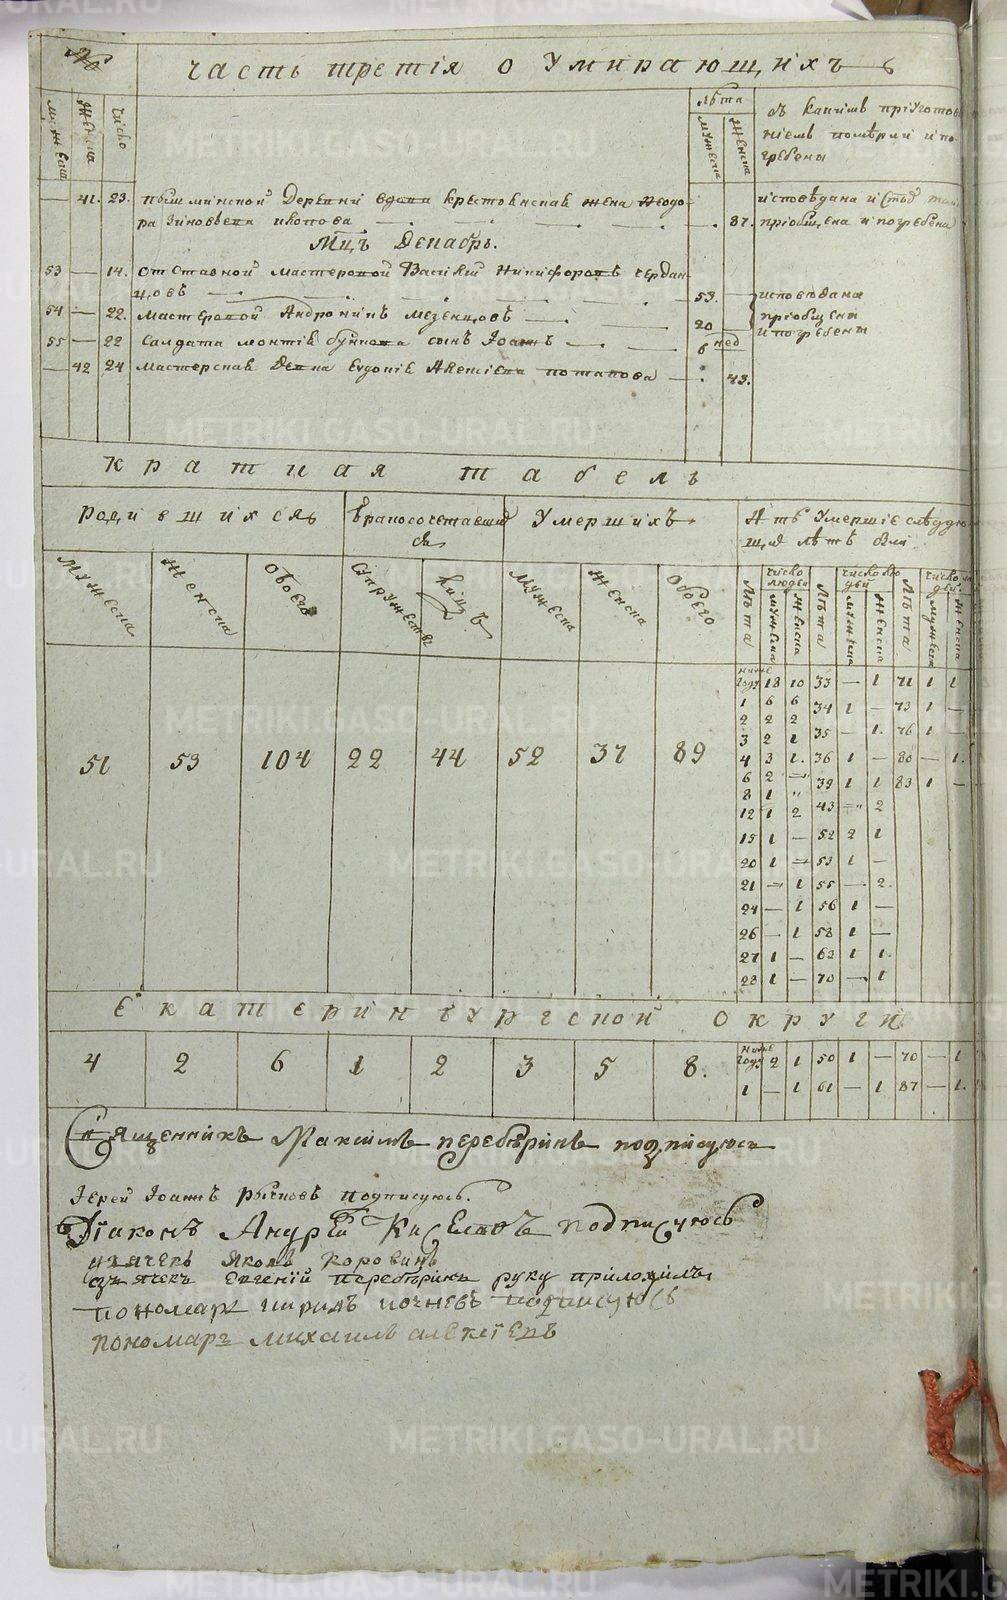 METRIKI.GASO-URAL.RU
часть третія о умирающихъ
мужеска
женска
число
лѣта
мужеска
женска
съ какимъ приуготов
ніемъ померли и по
гребены
— 41. 23. пышминской деревни крестьянская жена Ѳеодо
ра Зиновьева — 87.
исповѣдана и
пріобщена и погребена
Мцъ Декабрь.
53 — 14. отставной мастеровой Василій Никифоровъ чердан
цовъ — 53. —
54 — 22. мастеровой Андроникъ мезенцовъ — 20
55 — 22 салдата леонтія сынъ Іоаннъ — 6 нед
исповѣданы
пріобщены
и погребены
— 42 24 мастерская Евдокія потапова — 43.
краткая табель
родившихся
бракосочетавших
ся
умершихъ
А тѣ умершіе слѣдую
щих лѣтъ были
мужеска
женска
обоего
супружествъ
лицъ
мужеска
женска
обоего
лѣта
число людей
мужеска
женска
лѣта
число людей
мужеска
женска
лѣта
число людей
мужеска
женска
51 53 104 22 44 52 37 89
ниже году 18 10 33 — 1 71 1 1
1 6 6 34 1 — 73 1 —
2 2 2 35 — 1. 76 1 —
3 2 1 36 1 — 80 — 1.
4 3 1. 39 1 1 83 1 —
6 2 — 43 — 2
8 1 "
12 1 2 52 2 1
15 1 — 53 1 —
20 1 — 55 — 2.
21 — 1 56 1 —
24 — 1 58 1 —
26 — 1 62 1 1.
27 1 — 70 — 1
28 1 —
Екатеринбургской округи
4 2 6 1 2 3 5 8.
ниже году 2 1 50 1 — 70 — 1.
1 — 1 61 — 1 87 — 1.
Священникъ Максимъ перебѣринъ подписуюсь
Іерей Іоаннъ Рычковъ подписуюсь.
Діаконъ Андрей Киселевъ подписуюсь
дьячекъ Яковъ Коровинъ
дьячекъ Евгеній перебѣринъ руку приложилъ
пономарь подписуюсь
пономарь михаилъ алексіевъ